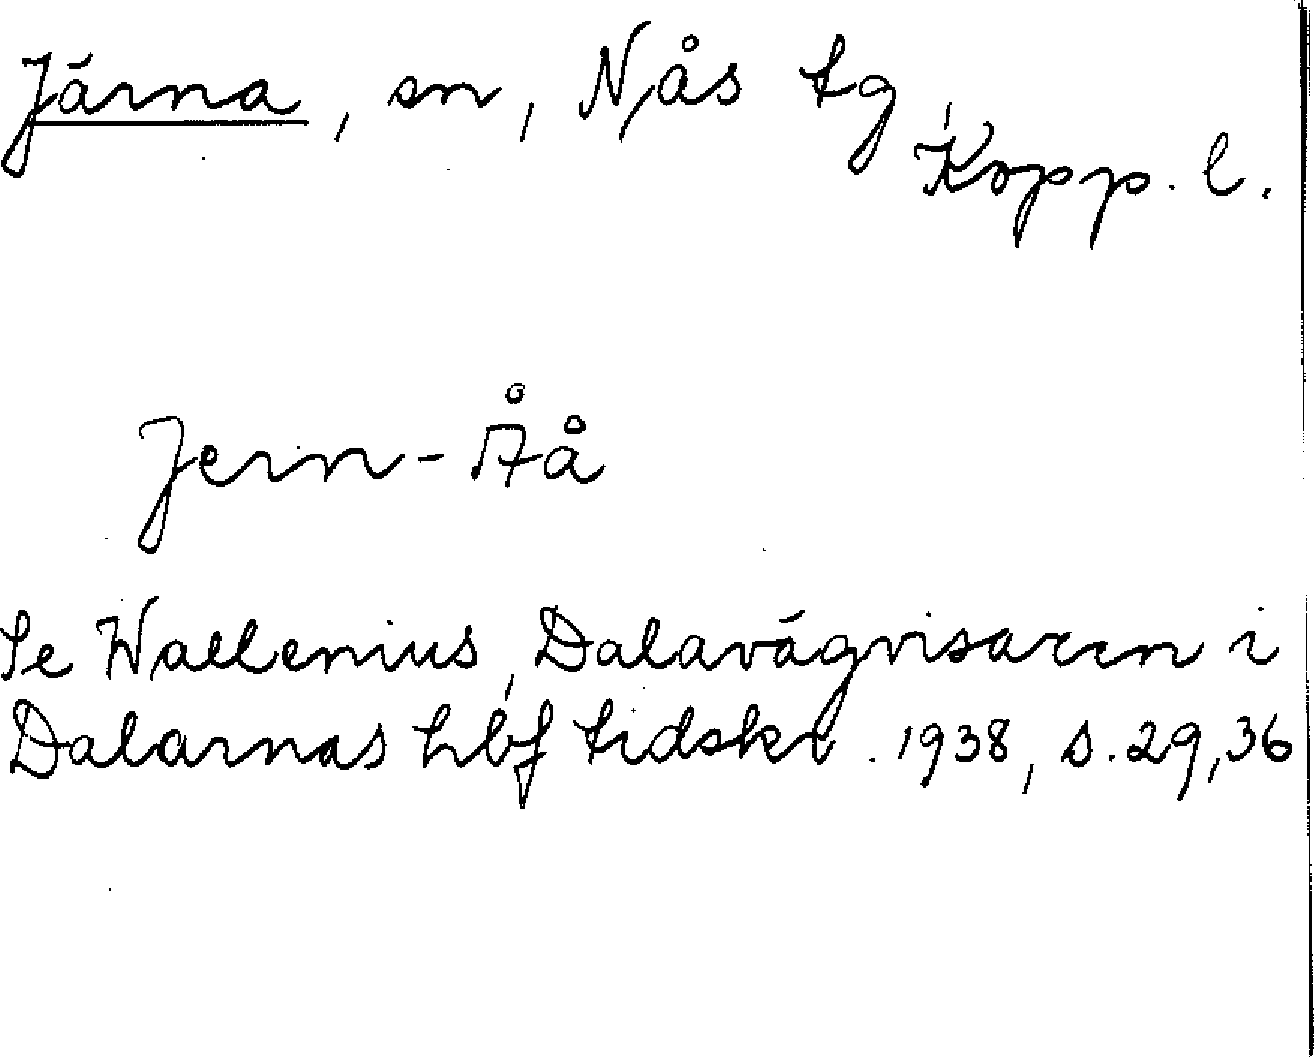 Järna, sn, Nås tg, Kopp. l.
Jern-Åå
Se Wallenius, Dalavägvisaren i
Dalarnas hbf tidskr. 1938, s. 29, 36